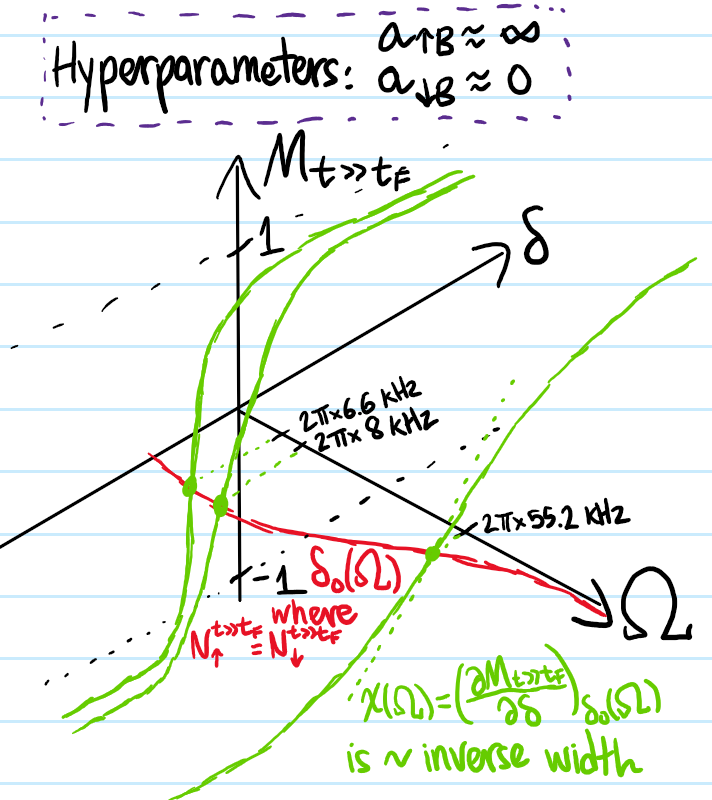 Hyperparameters: a↑B ≈ ∞
a↓B ≈ 0
M t>>tF
1
δ
2π×6.6 kHz
2π×8 kHz
2π×55.2 kHz
-1
δ₀(Ω)
where
N↑^t>>tF = N↓^t>>tF
Ω
χ(Ω) = (∂M t>>tF / ∂δ) δ₀(Ω)
is ~ inverse width